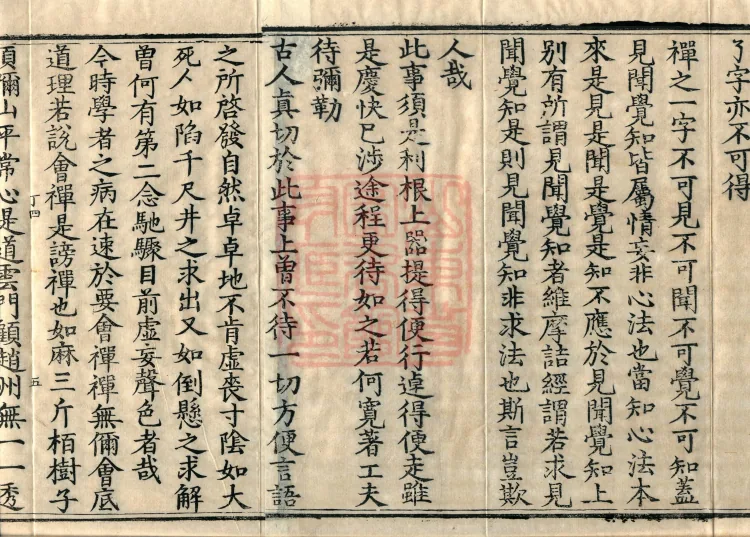 了字亦不可得
禪之一字不可見不可聞不可覺不可知蓋
見聞覺知皆屬情妄非心法也當知心法本
來是見是聞是覺是知不應於見聞覺知上
別有所謂見聞覺知者維摩詰經謂若求見
聞覺知是則見聞覺知非求法也斯言豈欺
人哉
此事須是利根上器提得便行逴得便走雖
是慶快已涉途程更待如之若何寬著工夫
待彌勒
古人真切於此事上曽不待一切方便言語
之所啓發自然卓卓地不肯虛喪寸陰如大
死人如陷千尺井之求出又如倒懸之求解
曽何有第二念馳驟目前虛妄聲色者哉
今時學者之病在速於要會禪禪無儞會底
道理若說會禪是謗禪也如麻三斤栢樹子
丁四
五
須彌山平常心是道雲門顧趙州無一一透